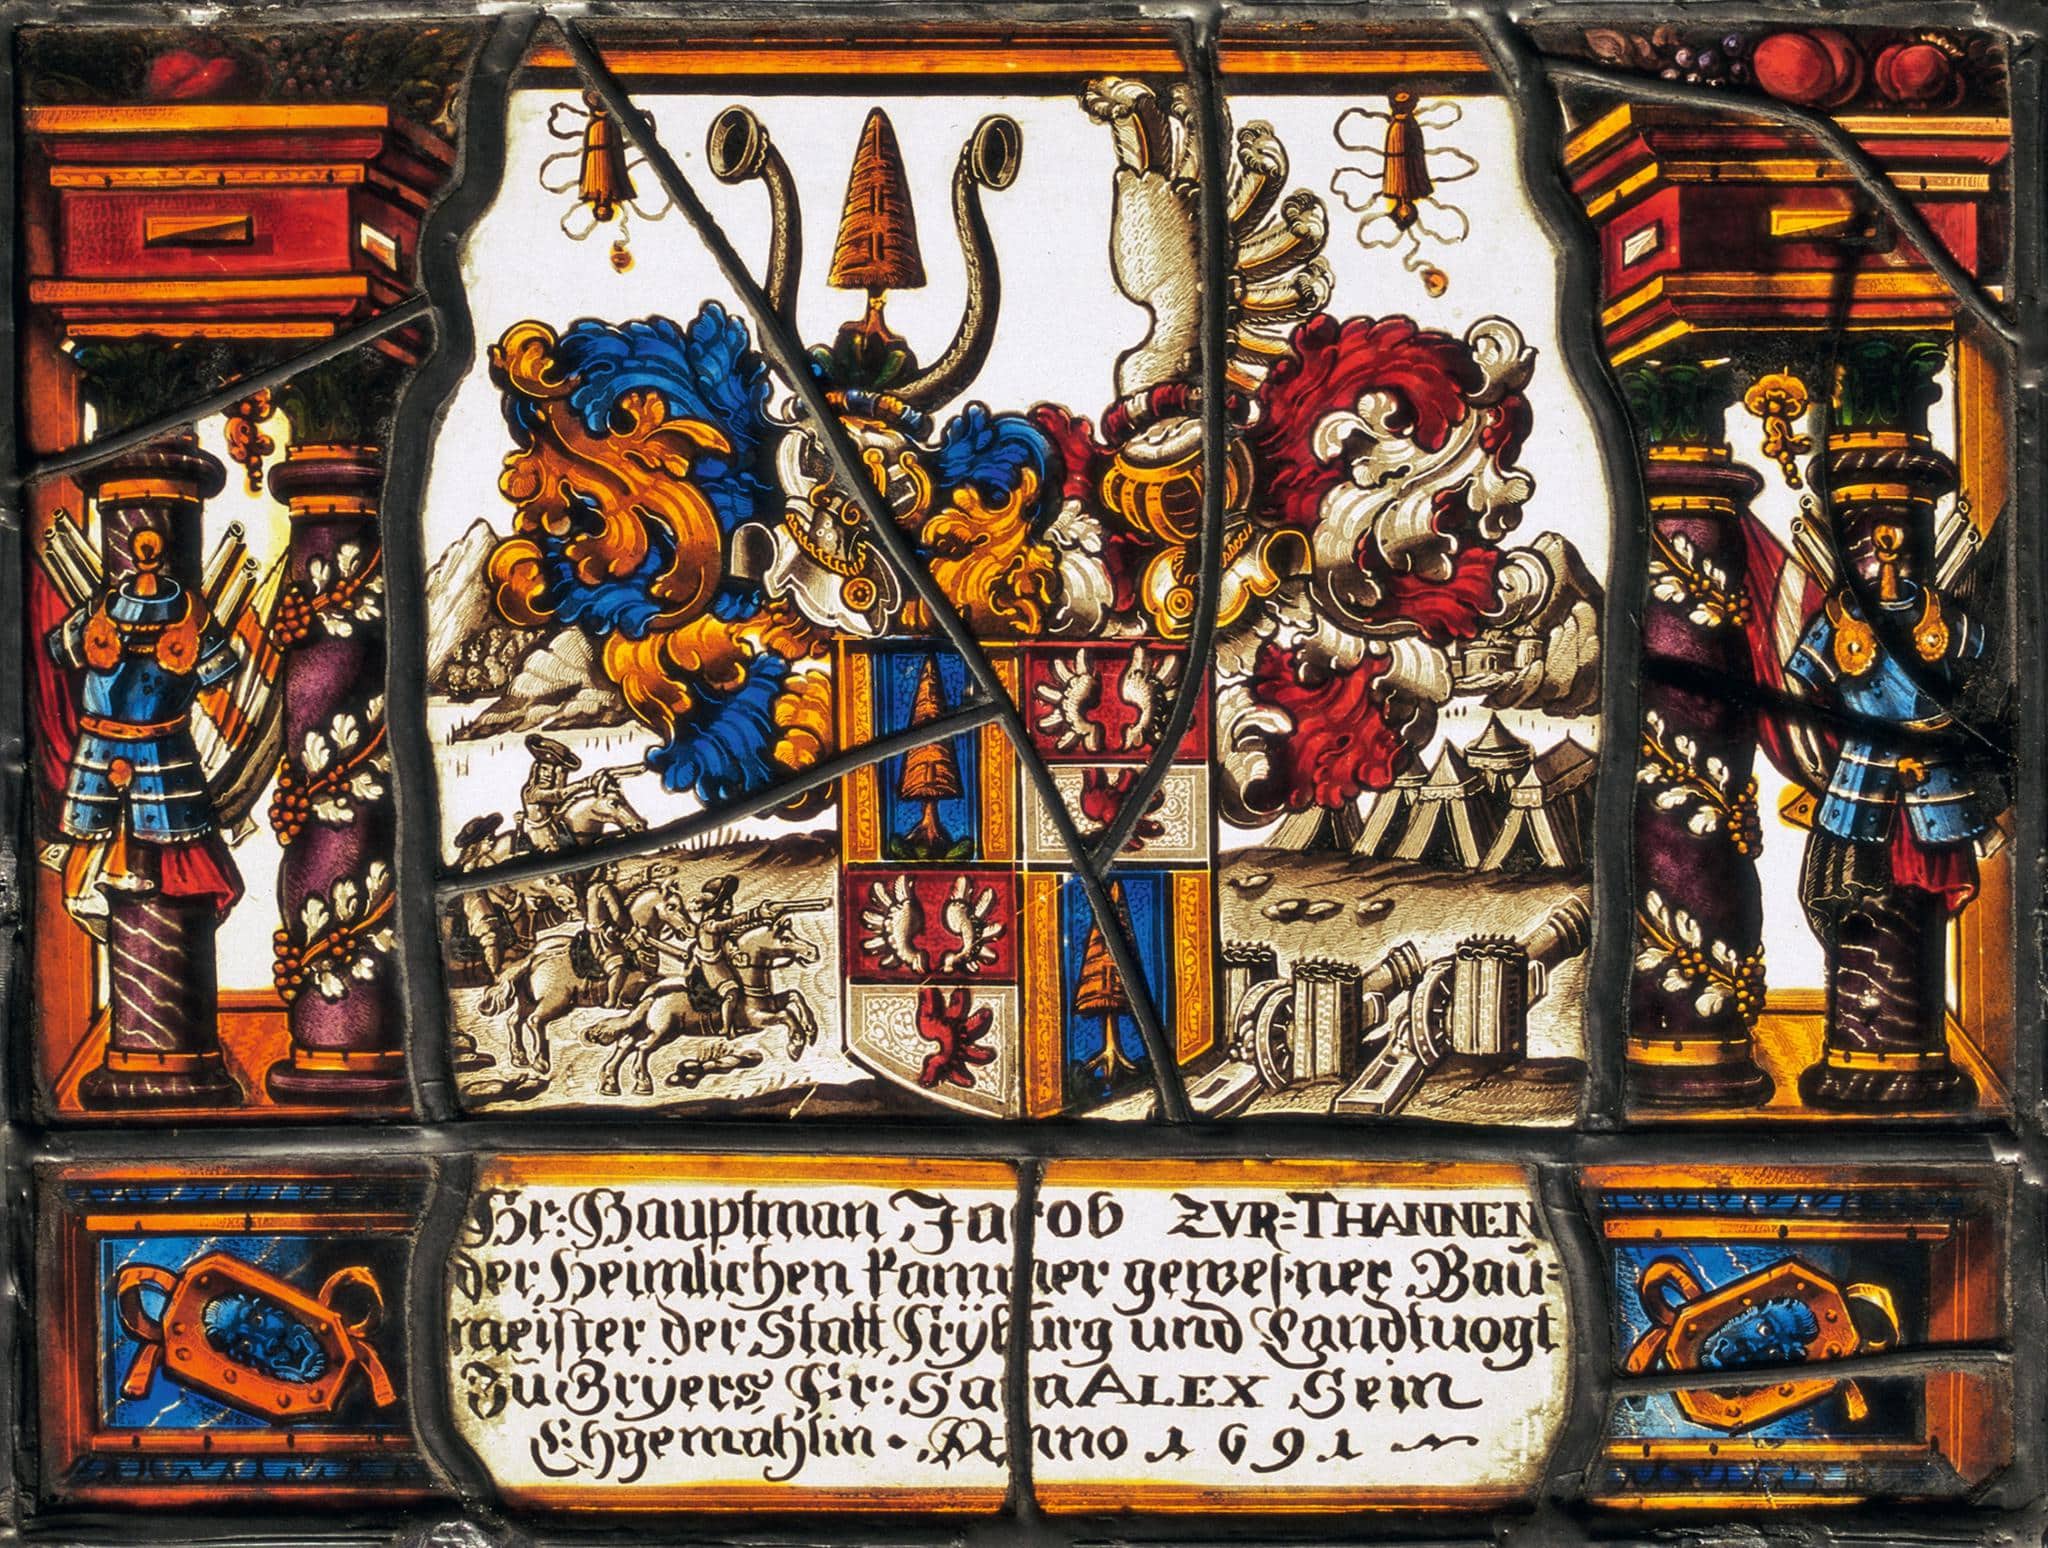 Hr: Hauptman Jacob ZVR=THANNEN
der Heimlichen Kammer gewesner Baü=
meister der Statt Frÿbürg und Landtuogt
Zü Brÿers Fr: Sara ALEX Sein
Ehgemahlin · Anno 1691